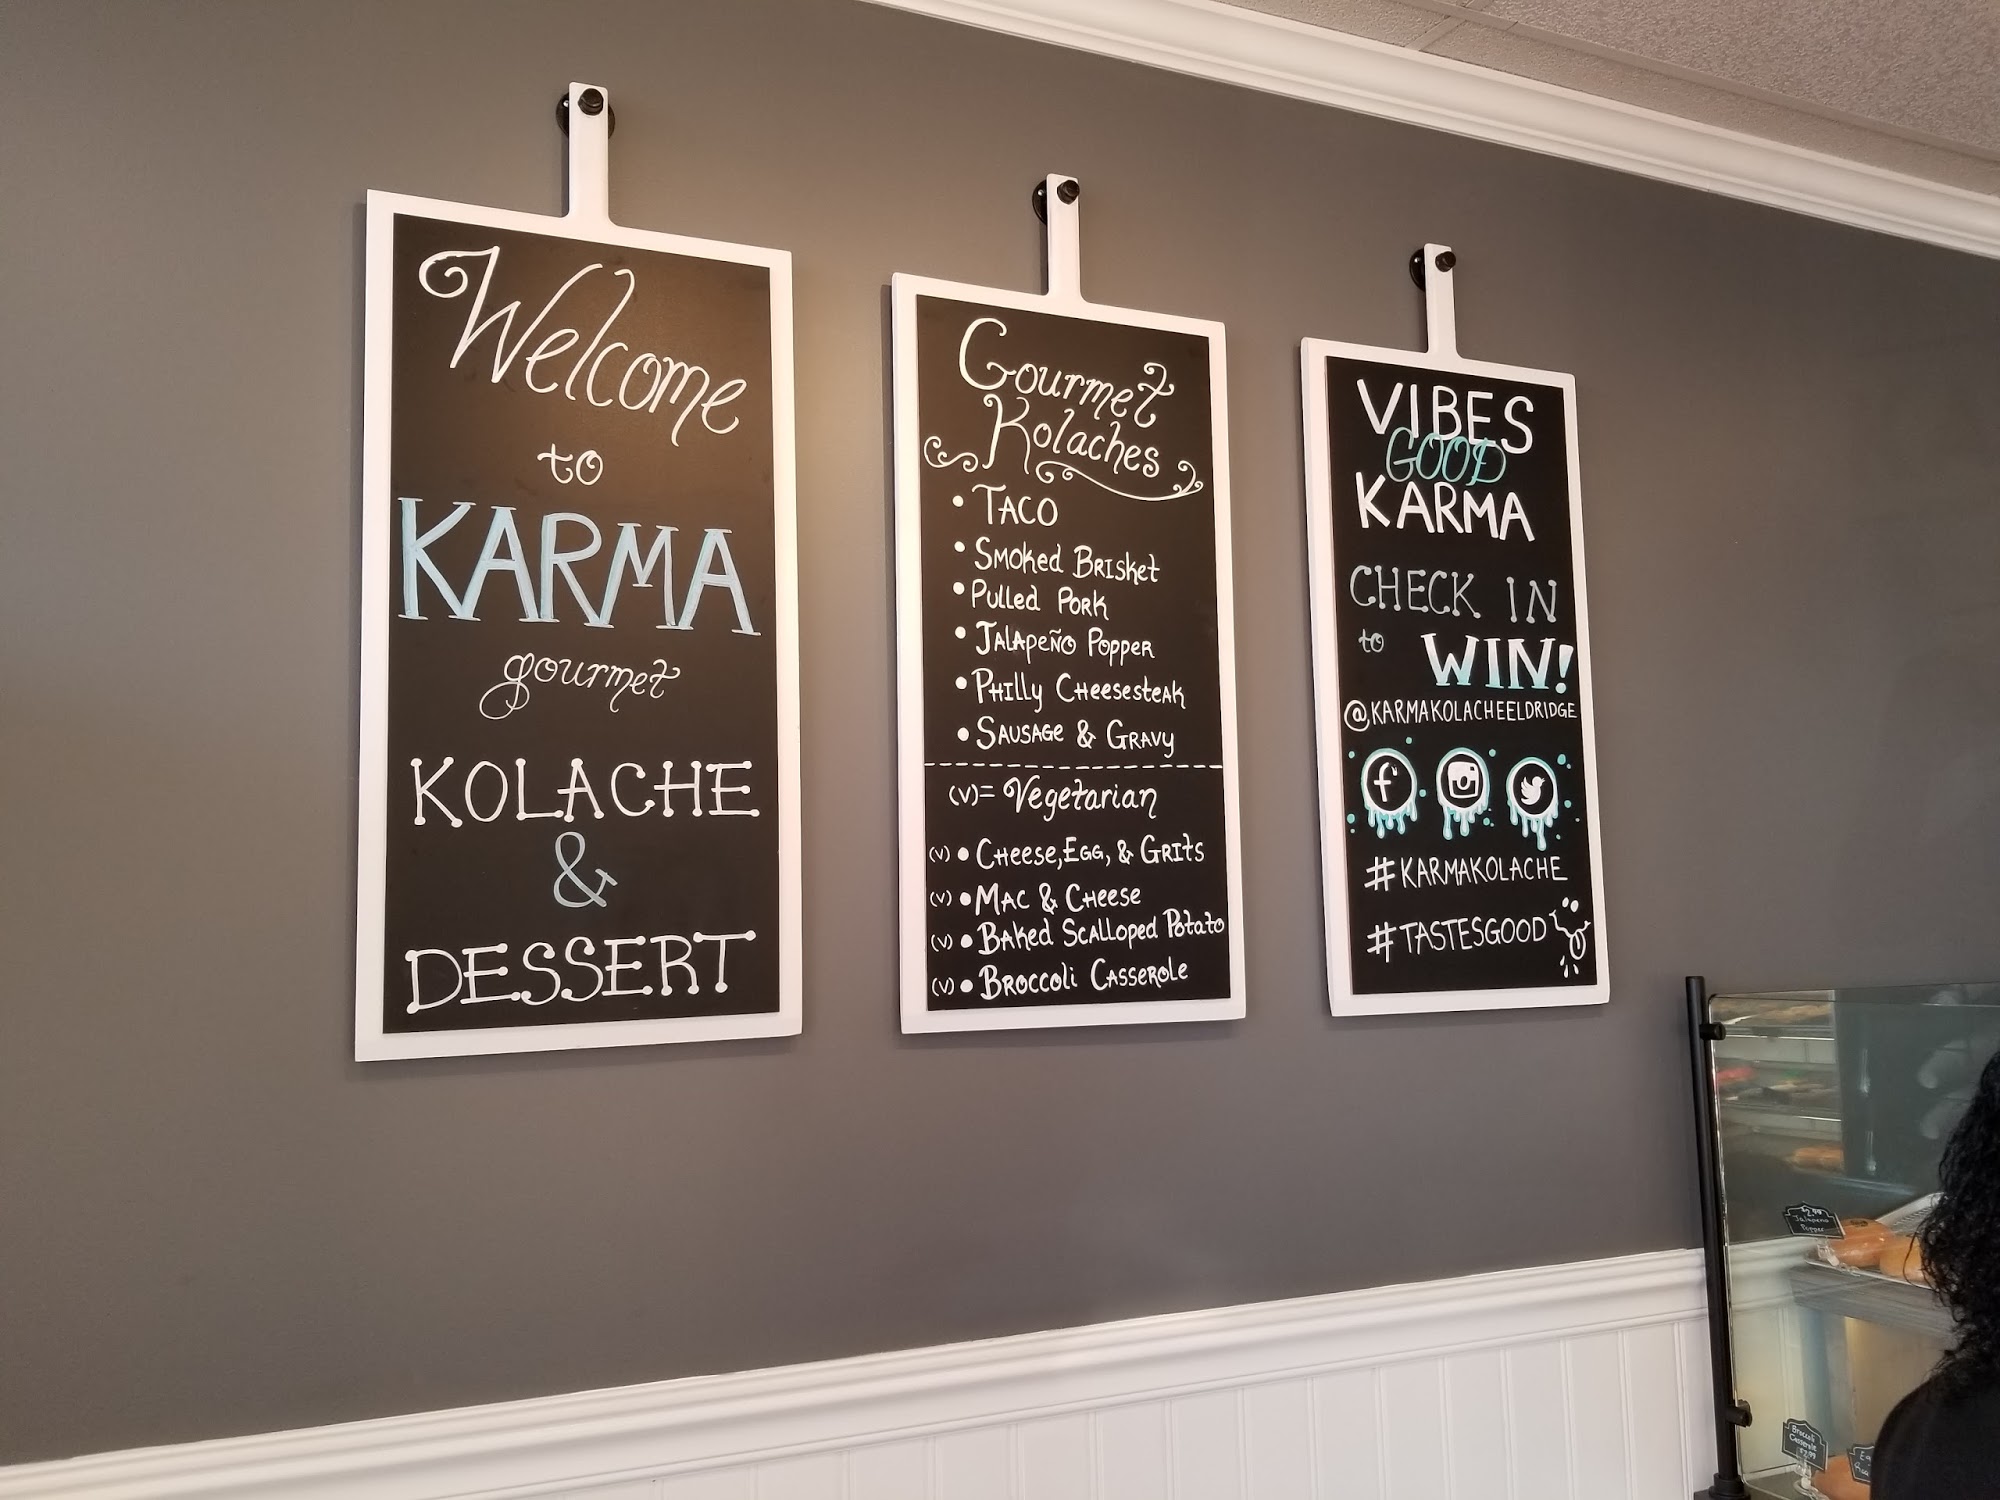 Welcome
to
KARMA
gourmet
KOLACHE
&
DESSERT
Gourmet
Kolaches
• TACO
• Smoked Brisket
• Pulled Pork
• Jalapeño Popper
• Philly Cheesesteak
• Sausage & Gravy
(v)= Vegetarian
(v) • Cheese, Egg, & Grits
(v) • Mac & Cheese
(v) • Baked Scalloped Potato
(v) • Broccoli Casserole
VIBES
GOOD
KARMA
CHECK IN
to WIN!
@KARMAKOLACHEELDRIDGE
#KARMAKOLACHE
#TASTESGOOD
$2.99
Jalapeño
Popper
Broccoli
Casserole
$2.99